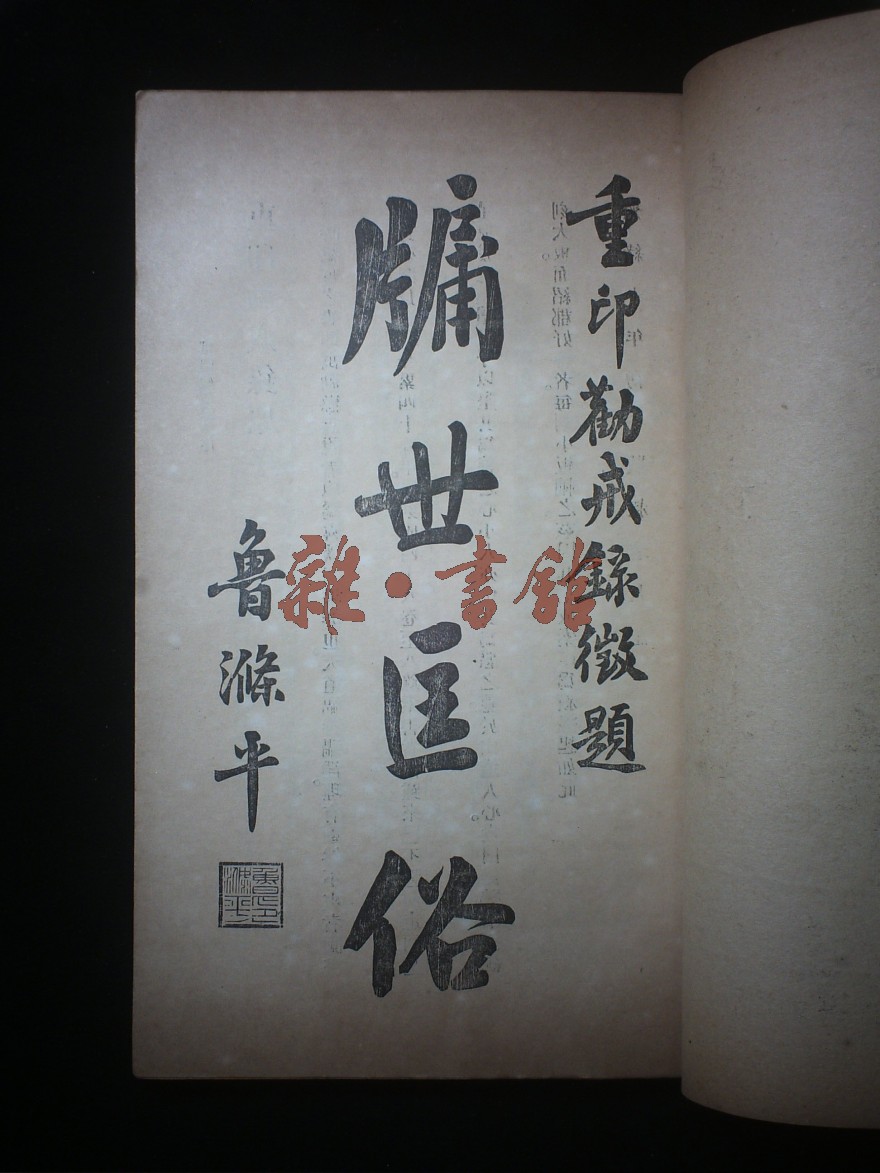 重印勸戒錄徵題
牖世匡俗
魯滌平
雜·書館